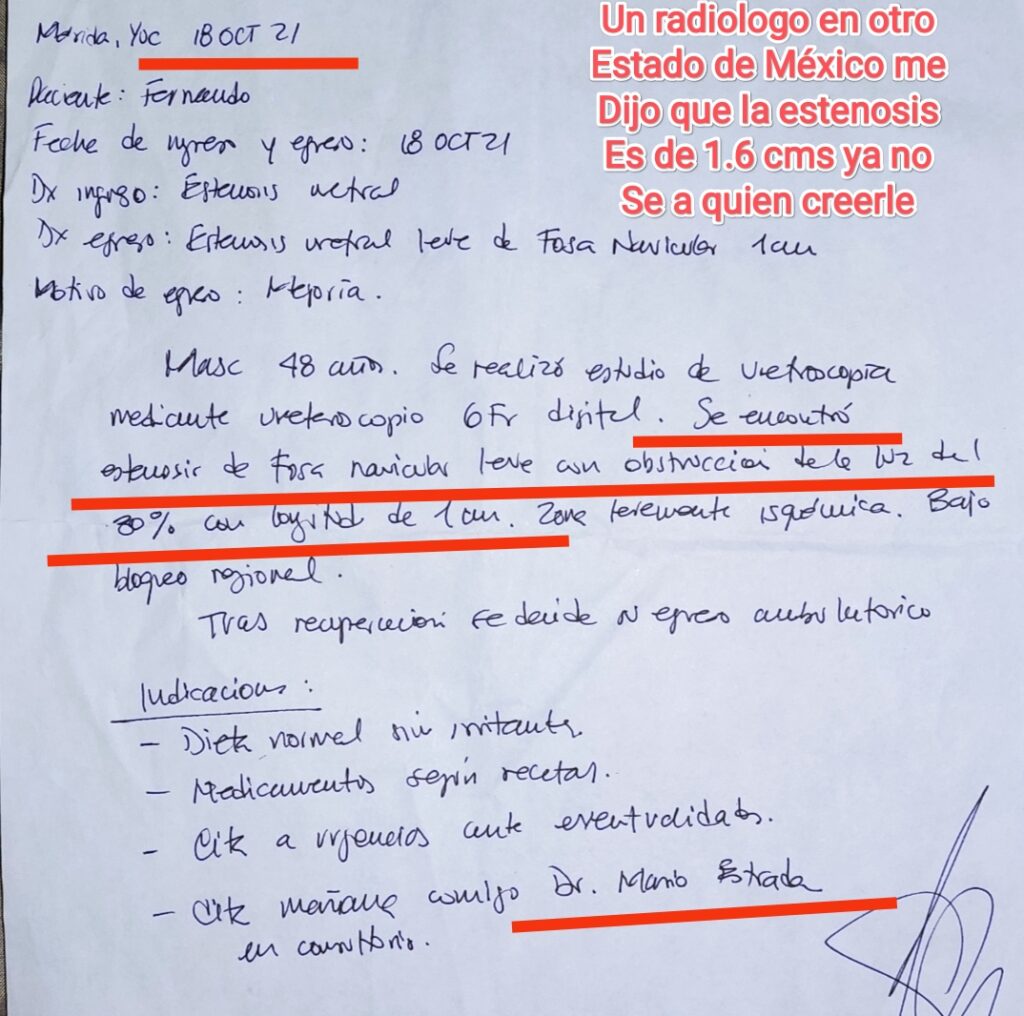 Mérida, Yuc 18 OCT 21
Un radiologo en otro
Estado de México me
Dijo que la estenosis
Es de 1.6 cms ya no
Se a quien creerle
Paciente: Fernando
Fecha de ingreso y egreso: 18 OCT 21
Dx ingreso: Estenosis uretral
Dx egreso: Estenosis uretral leve de Fosa Navicular 1cm
Motivo de egreso: Mejoría.
Masc 48 años. Se realizó estudio de uretroscopia
mediante ureteroscopio 6Fr digital. Se encontró
estenosis de Fosa navicular leve con obstruccion de la luz del
% con longitud de 1cm. Zona levemente isquémica. Bajo
bloqueo regional.
Tras recuperacion se decide su egreso ambulatorico
Indicaciones:
- Dieta normal sin irritantes.
- Medicamentos según recetas.
- Cita a urgencias ante eventualidades.
- Cita mañana conmigo Dr. Mario Estrada
en consultorio.